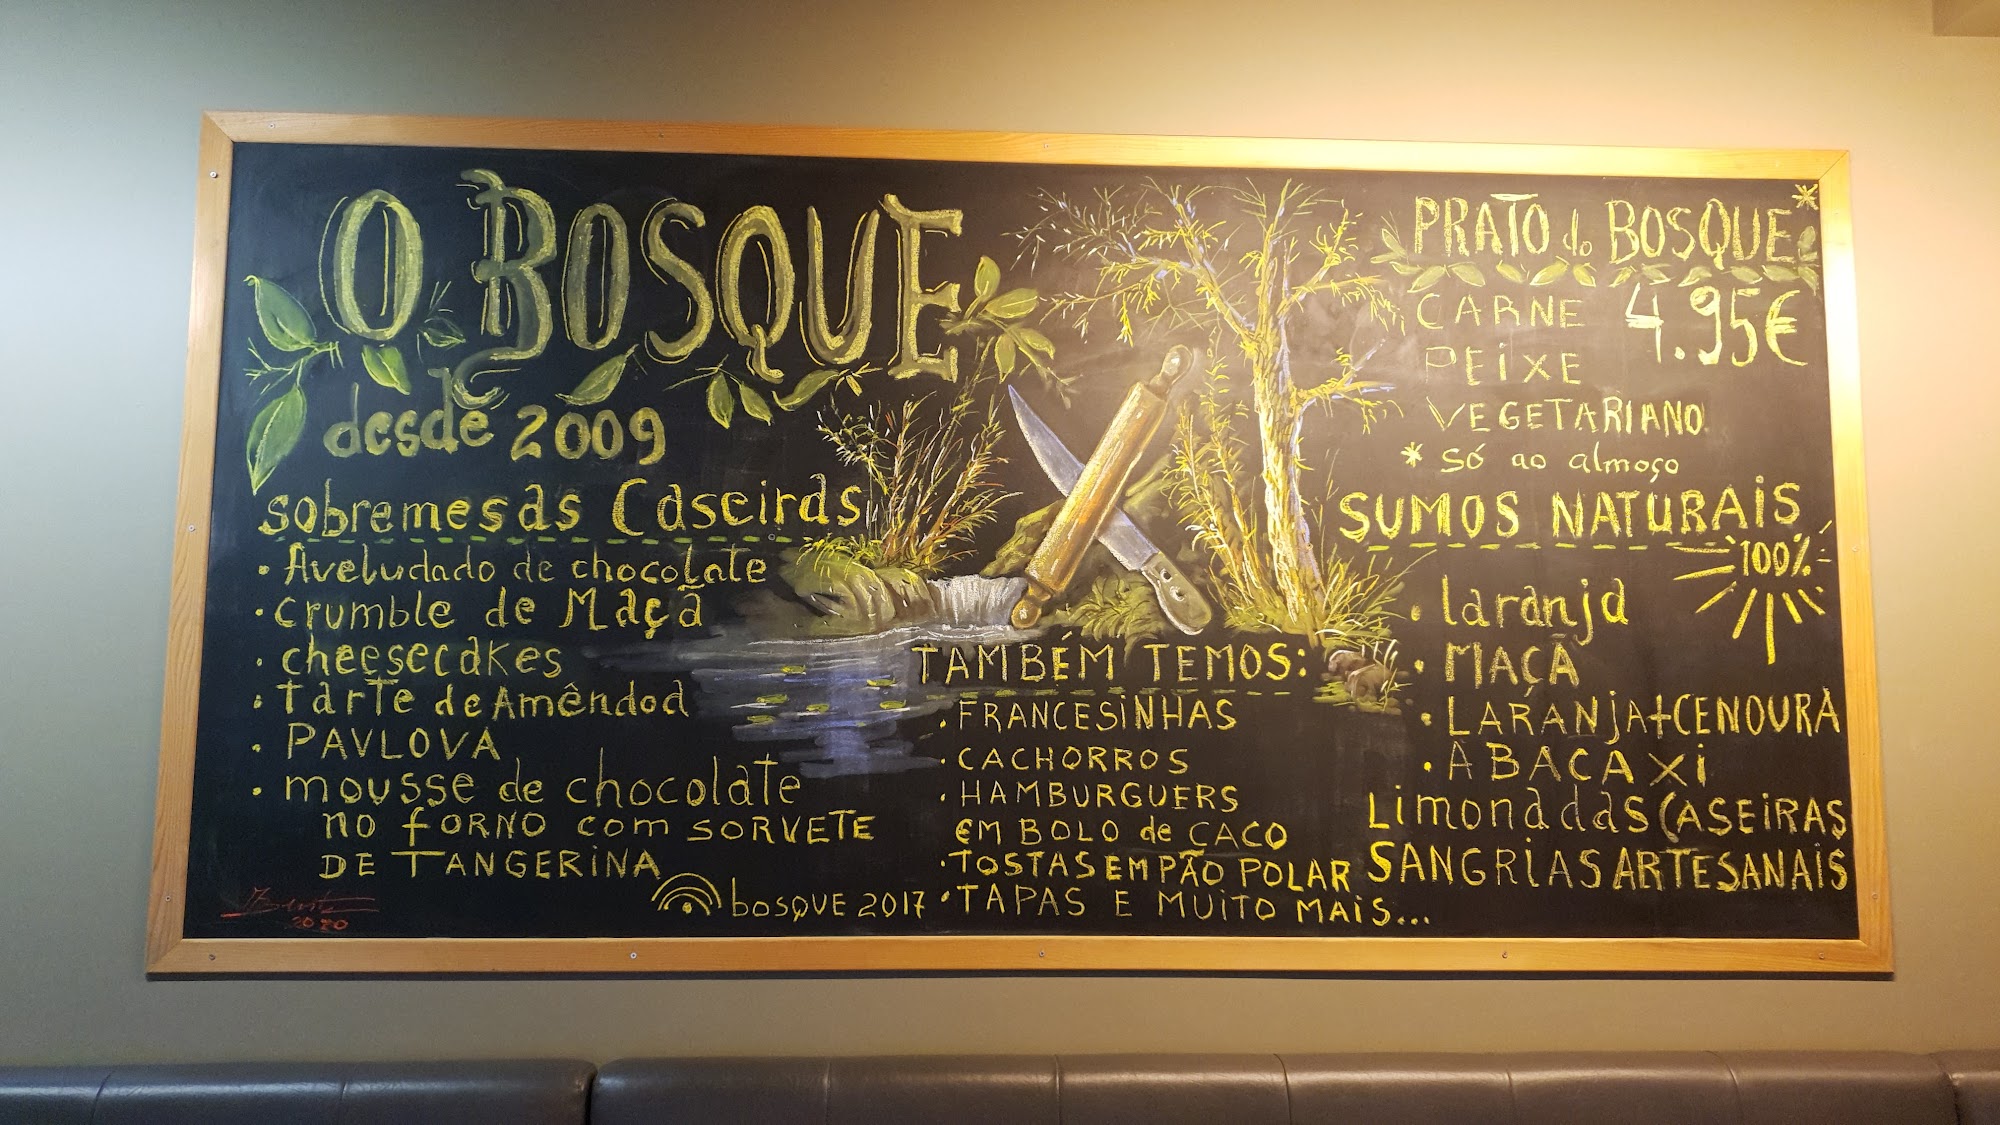 O BOSQUE
desde 2009
sobremesas Caseiras
• Aveludado de chocolate
• crumble de Maçã
• cheesecakes
• tarte de Amêndoa
• PAVLOVA
• mousse de chocolate
no forno com sorvete
de Tangerina
bosque 2017
2020
TAMBÉM TEMOS:
• FRANCESINHAS
• CACHORROS
• HAMBURGUERS
EM BOLO de CACO
• TOSTAS EM PÃO POLAR
• TAPAS E MUITO MAIS...
PRATO do BOSQUE*
CARNE 4.95€
PEIXE
VEGETARIANO
* só ao almoço
SUMOS NATURAIS
100%
• laranja
• MAÇÃ
• LARANJA+CENOURA
• ABACAXi
Limonadas CASEIRAS
SANGRIAS ARTESANAIS